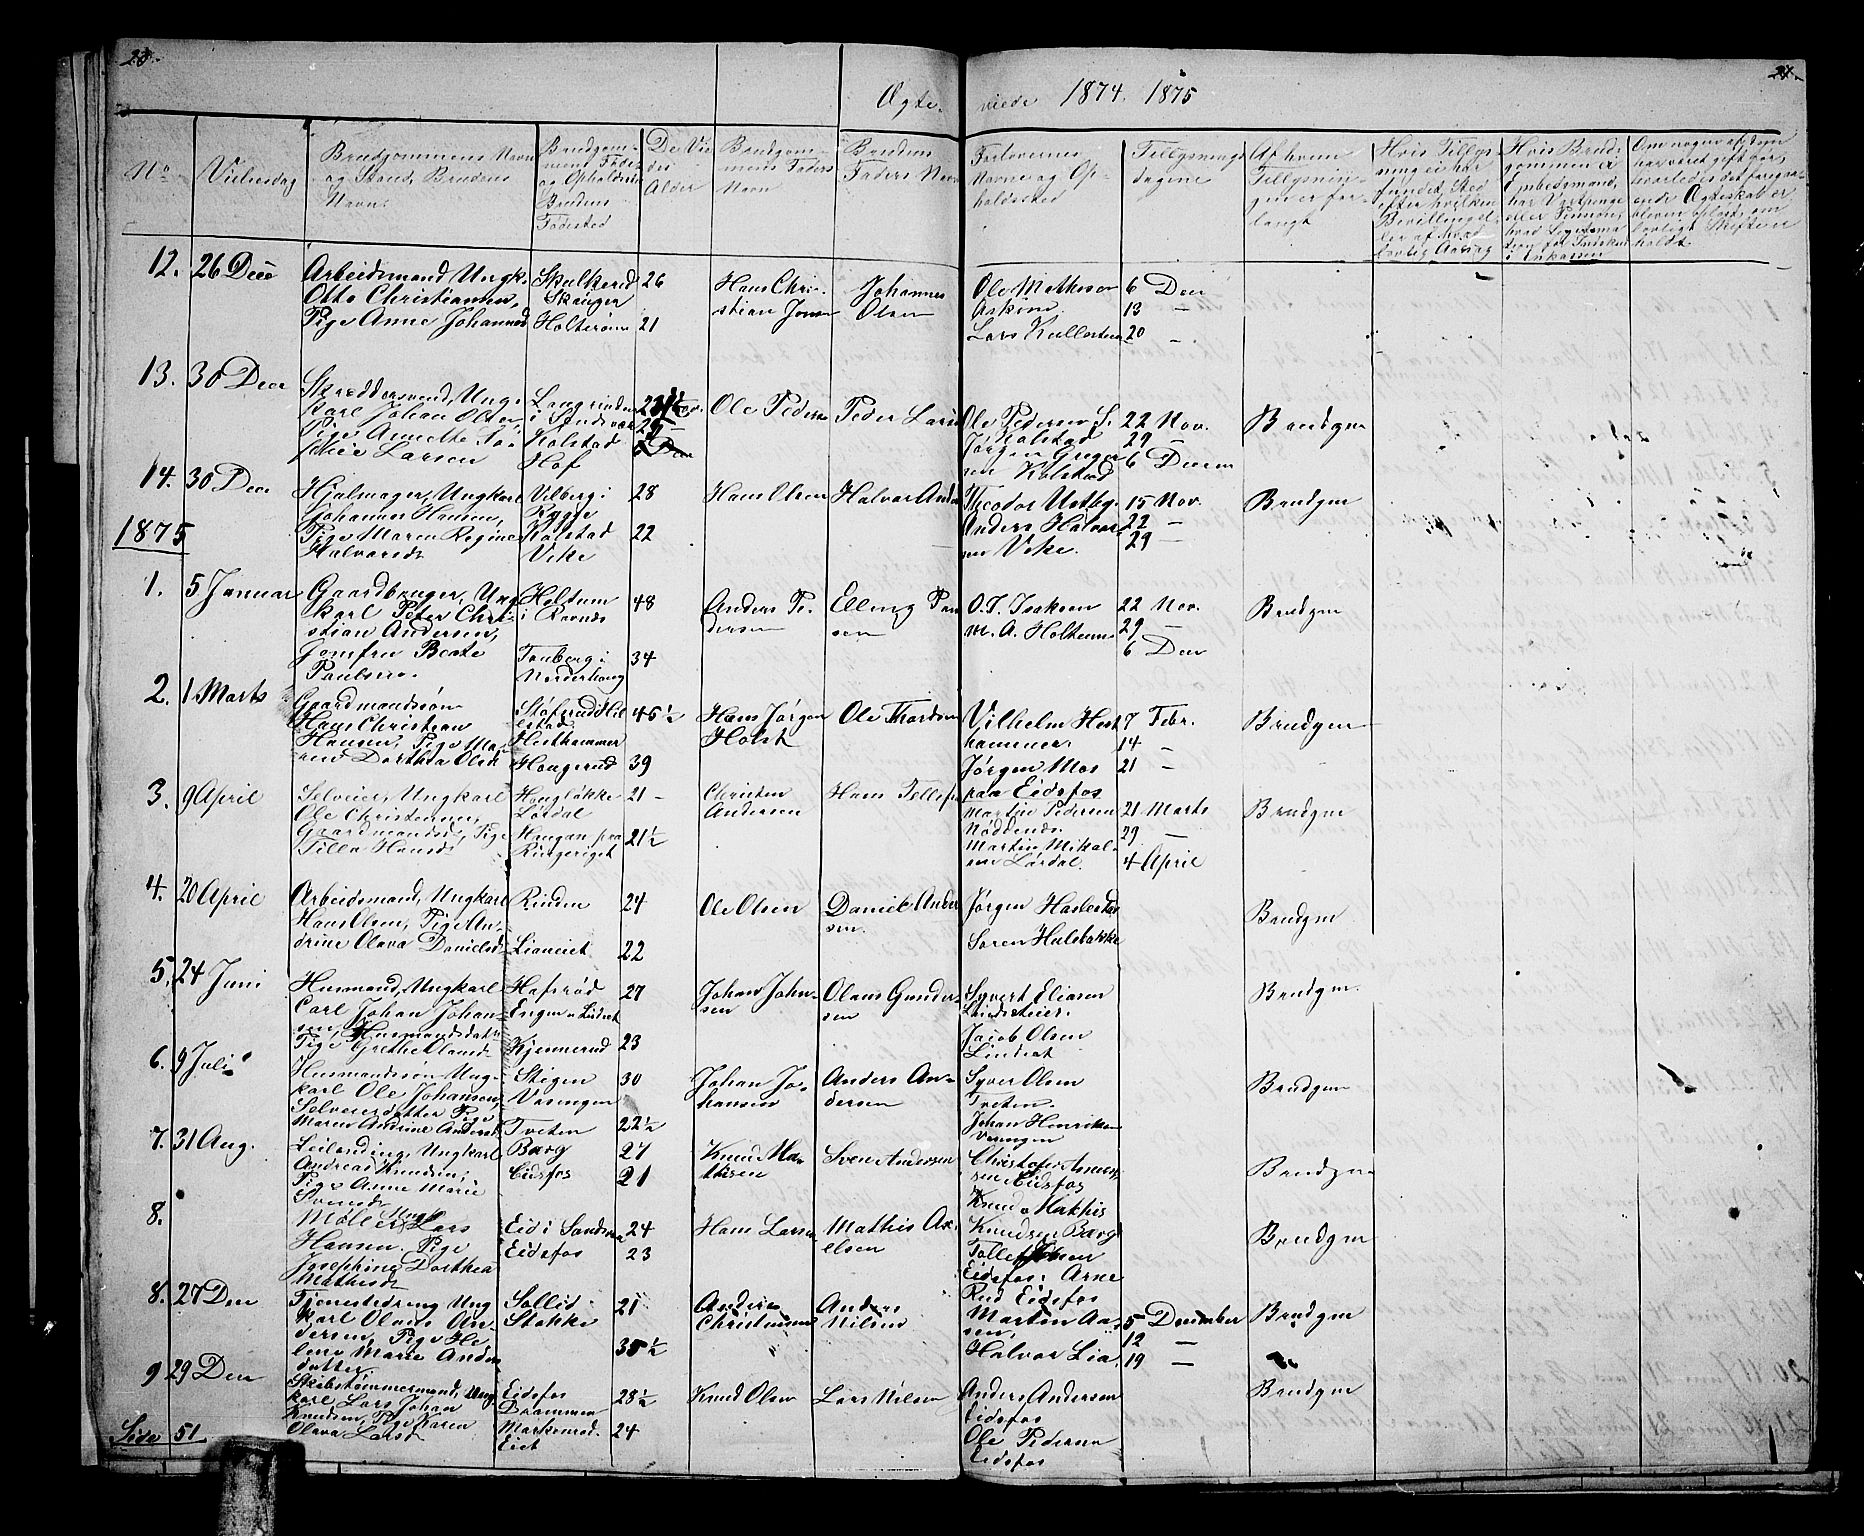 23.
24.
Ægte- viede 1874. 1875
No
Vielsesdag
Brudgommens Navn
og Stand, Brudens
Navn.
Brudgom-
mens Føde
og Opholdssted
Brudens
Fødested
De Vie
des
Alder
Brudgom-
mens Faders
Navn
Brudens
Faders Navn
Forlovernes
Navne og Op-
holdssted
Tillysnings
dagene
Af hvem
Tillysnin-
gen er for-
langt
Hvis Tillys
ning ei har
fundet Sted
efter hvilken
Bevilling el-
ler af hvad
lovlig Aarsag
Hvis Brud-
gommen er
Embedsmand,
Om nogen af dem
har været gift før,
hvorledes det foregaa-
ende Ægteskab er
bleven opløst, om
lovligt Skifte er
holdt.
12. 26 Decb
Arbeidsmand Ungk.
Otto Christiansen,
Pige Anne Johannesd
Skulkerud
Skauger
Holterønn
26
21
Hans Chri-
stian Jensen
Johannes
Olsen
Ole Mathesen
Lars Kullerteen
6 Decr
13 —
20 —
13. 30 Decr
Skræddersvend, Ung-
karl Johan Olsen,
Pige Annette So-
phie Larsen
Langrinden
i Sandsvær
Kolstad
Hof
Ole Pedersen
Peder Larsen
Ole Pedersen S.
Kolstad
Jørgen Greger
sen Kolstad
22 Nov.
29 —
6 Decem
Brudgm
14. 30 Decr
Hjulmager, Ungkarl
Johannes Hansen,
Pige Maren Regine
Halvorsd.
Vilberg i
Rygge
Kolstad
Vike
28
22
Hans Olsen
Halvor Anders
Theodor Ustbg.
Anders Halvor
sen Vike.
15 Nov.
22 —
29 —
Brudgm
1875
1. 5 Januar
Gaardbruger, Ung
karl Peter Chri-
stian Andersen,
Jomfru Beate
Paulsen.
Holtum
i Ravnes
Tanberg i
Norderhoug
48
34
Anders Pe-
dersen
Elling Paul
sen
O. J. Isaksen
M. A. Holtum
22 Nov.
29 —
6 Decr
Brudgm
2. 1 Marts
Gaardmandssøn
Hans Christian
Hansen, Pige Ma-
ren Dorthea Olsd
Støfsrud Hil
lestad
Hesthammer
Haugerud
45½
39
Hans Jørgen
Holst
Ole Thordsen
Vilhelm Hest
hammer.
Jørgen Mos
paa Eidsfos
7 Febr.
14 —
21 —
Brudgm
3. 9 April
Selveier, Ungkarl
Ole Christensen,
Gaardmandsd, Pige
Tilla Hansd
Haugløkke
Lørdal
Haugan paa
Ringeriget
21 —
21½
Christen
Andersen
Hans Tollefs
Martin Pedersen
Nøddenes.
Martin Mikal-
sen Lørdal
21 Marts
29 —
4 April
Brudgm
4. 20 April
Arbeidsmand, Ungkarl
Hans Olsen, Pige An-
drine Olava Danielsd
Rinden
Lianeiet
24
22
Ole Olsen
Daniel Ander
sen.
Jørgen Haslestad
Søren Hulebakke
Brudgm
5. 24 Juni
Husmand, Ungkarl
Carl Johan Johan-
sen, Husmandsdatr
Pige Grethe Olausd
Hafsrød
Engen u Lindset
Kjennerud
27
23
Johan Johan-
sen
Olaus Gunder-
sen
Syvert Eliasen
Jacob Olsen
Lindset
Brudgm.
6. 9 Juli
Husmandssøn Ung-
karl Ole Johansen,
Selveierdatter Pige
Maren Andrine Andersd
Stigen
Vasengen
Tveten
30
22½
Johan Jo-
hansen
Anders An-
dersen
Syver Olsen
Tveten.
Johan Henriksen
Vasengen
Brudgm
7. 31 Aug.
Leilending, Ungkarl
Andreas Knudsen,
Pige Anne Marie
Svensd
Barg
Eidsfos
27
21
Knud Ma-
thisen
Sven Andersen
Christofer Asmun
sen Eidsfos
Knud Mathis
Brudgm
8.
Møller Ungk Lars
Hansen. Pige
Josephine Dorthea
Mathisd
Eid i Sandsvær
Eidsfos
24
23
Hans Larsen
Mathis Ax-
elsen
Knudsen Barg
Eidsfos: Arne
Rud Eidsfos
Brudgm
8. 27 Decr
Tjenestedreng Ung
karl Olaus An-
dersen, Pige He-
lene Marie Anders
datter
Sollid
Stokke
21
35½
Anders
Christensen
Anders
Nilsen
Martin Aas
sen,
Halvor Lia.
5 December
12 —
19 —
Brudgm
9 29 Decr
Skibstømmermand, Ung
karl Lars Johan
Knudsen, Pige Karen
Olava Larsd
Eidsfos
Drammen
Markerud
Eiet
28½
24
Knud Olsen
Lars Nilsen
Anders Andersen
Eidsfos
Ole Pedersen
Eidsfos
Brudgm
Side 51